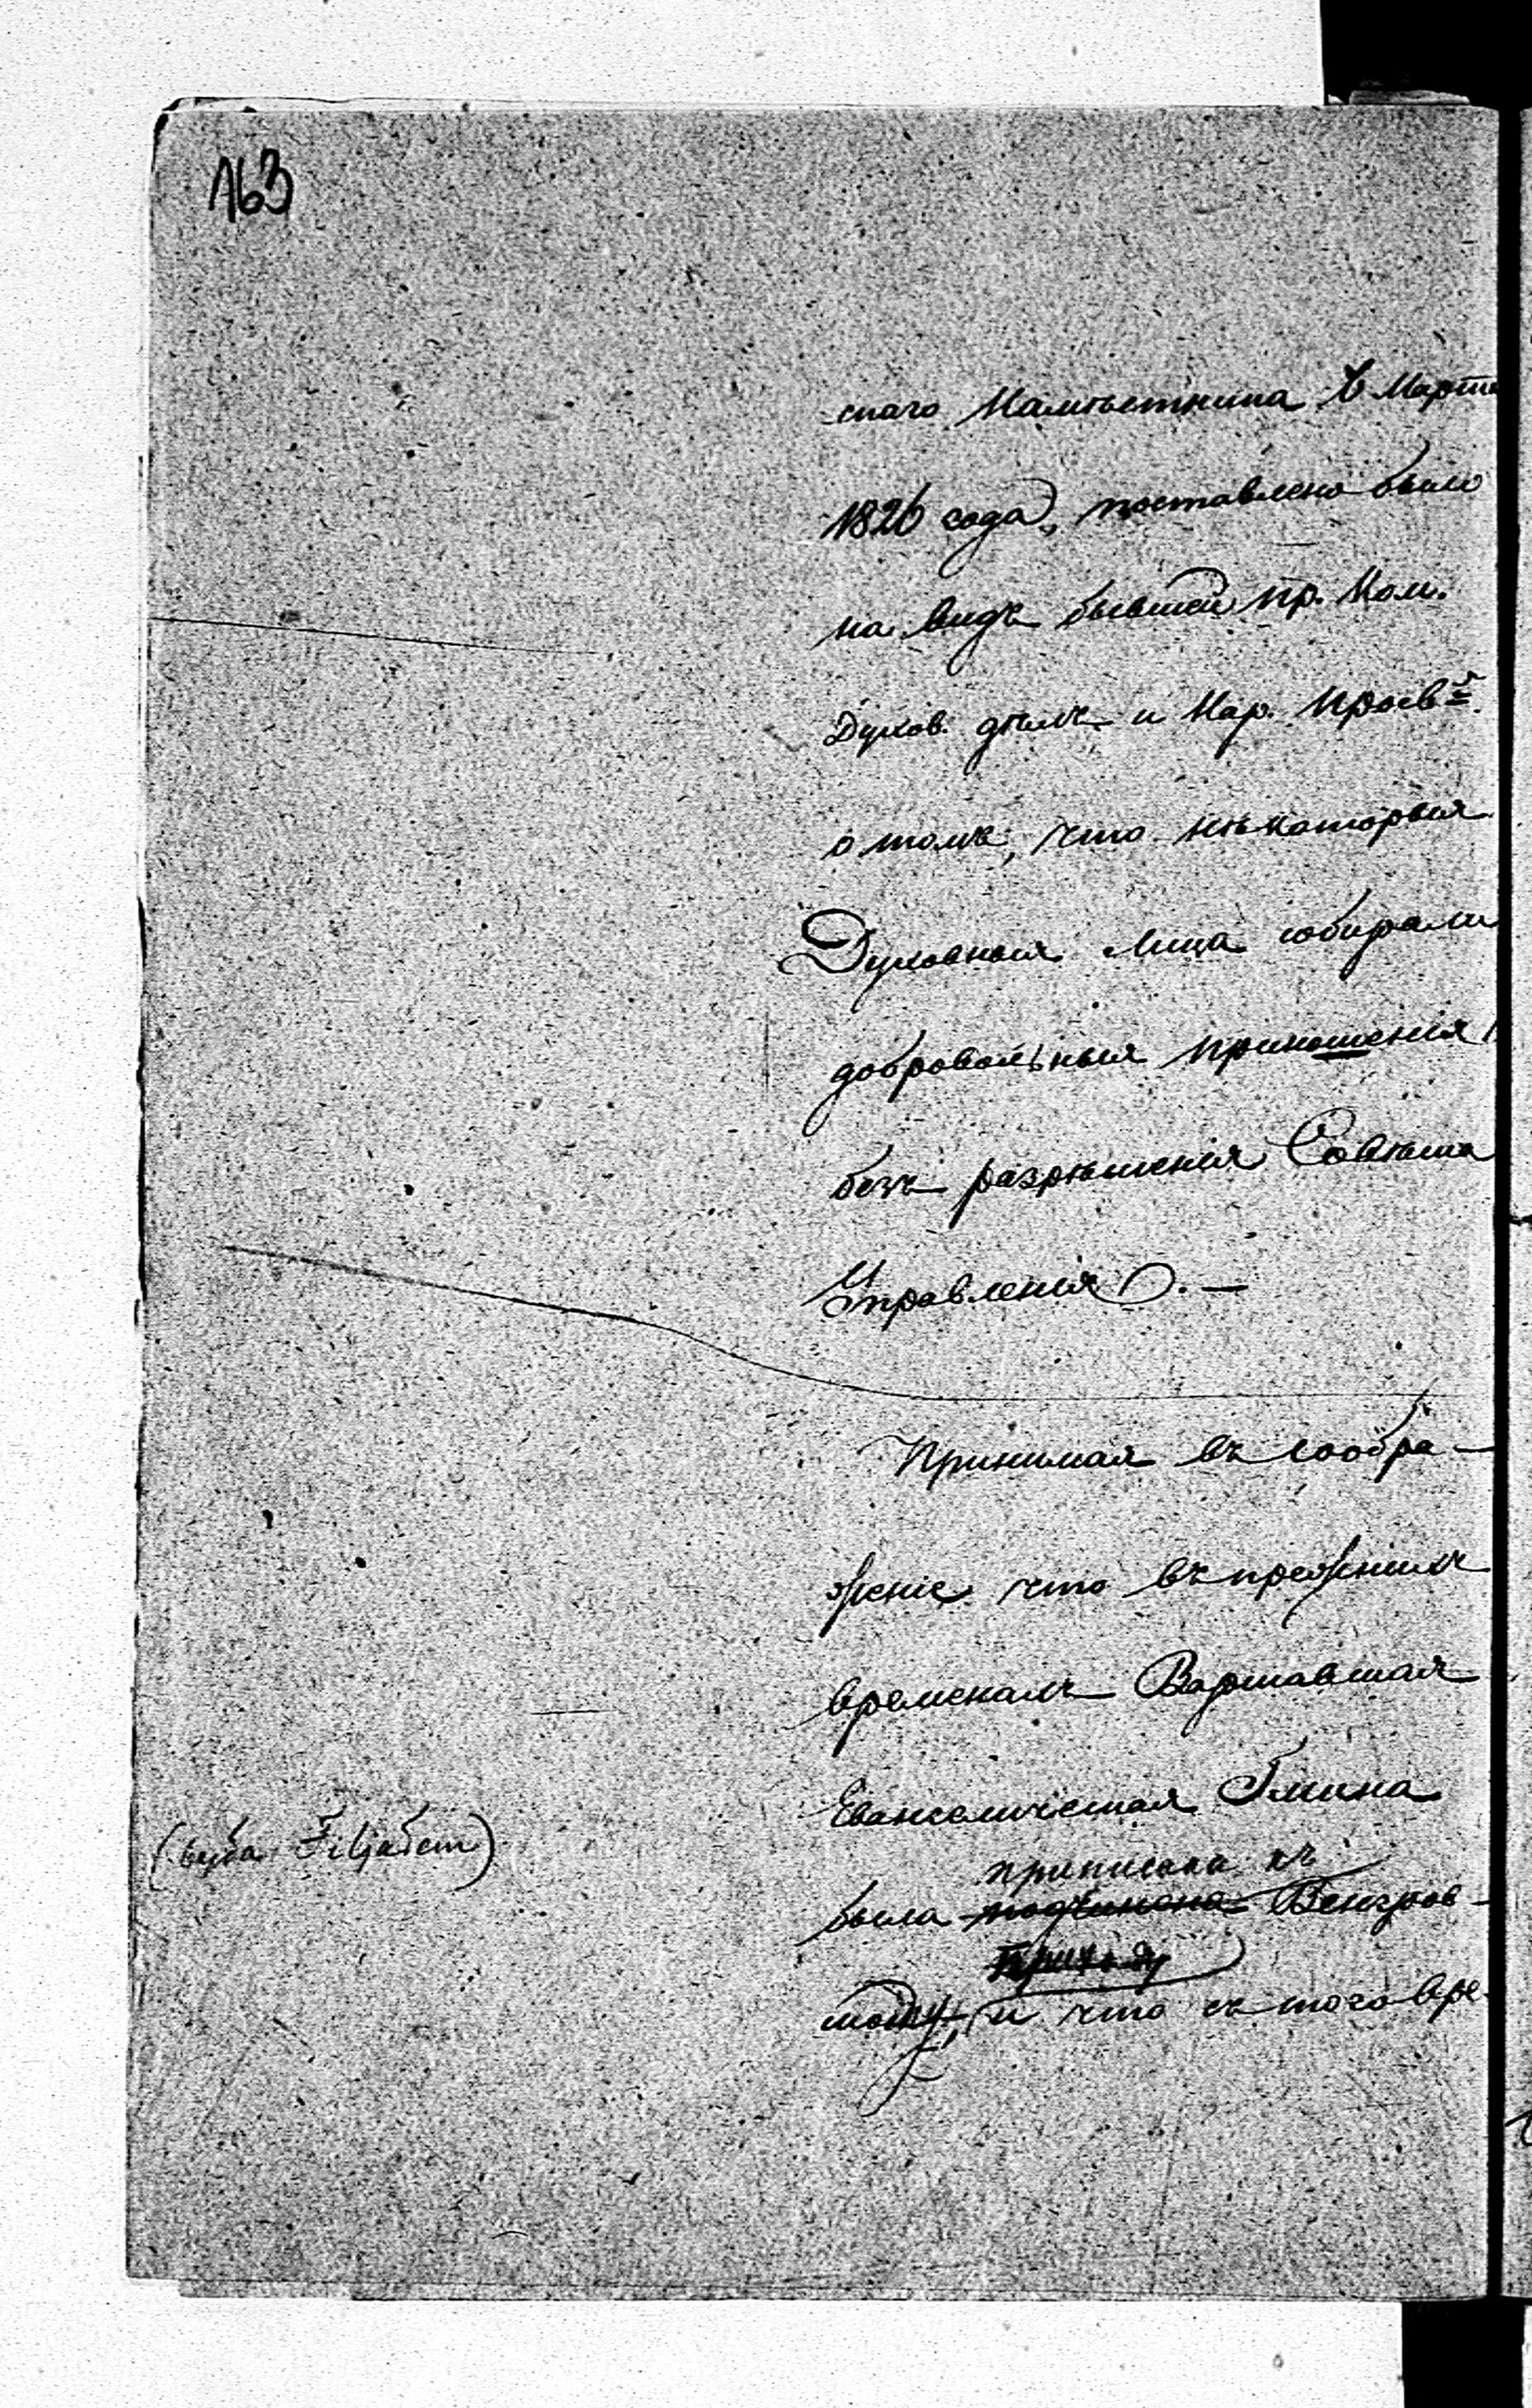 163
скаго Намѣстника 6 Марта
1826 года, поставлено было
на видъ бывшей Пр. Ком.
Духов. дѣлъ и Нар. Просв.
о томъ, что нѣкоторыя
Духовныя лица собирали
добровольныя приношенія
безъ разрѣшенія Совѣта
Управленія. —
Принимая въ сообра-
женіе что въ прежнихъ
временахъ Варшавская
Евангелическая Гмина
(была Filjałem)
приписана къ
была подчинена Венгров-
Приходу
скому, и что съ того вре-